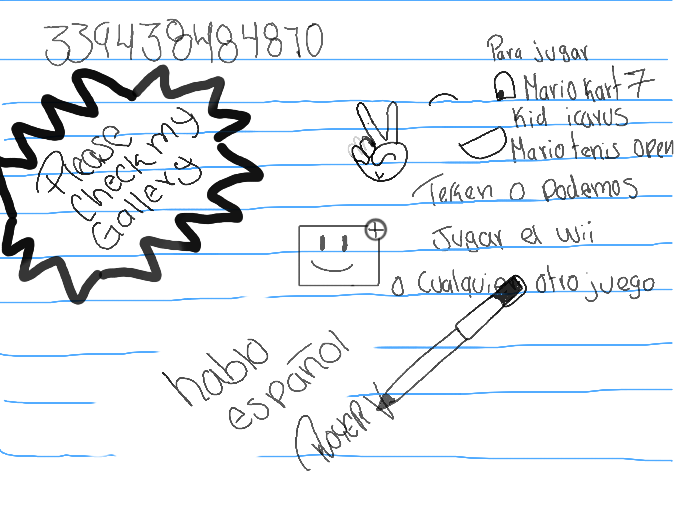 339438484870
Please
Check my
Gallery
Para jugar
Mario Kart 7
Kid icarus
Mario tenis open
Teken o Podemos
Jugar el wii
o Cualquier otro juego
hablo
español
ROYER V